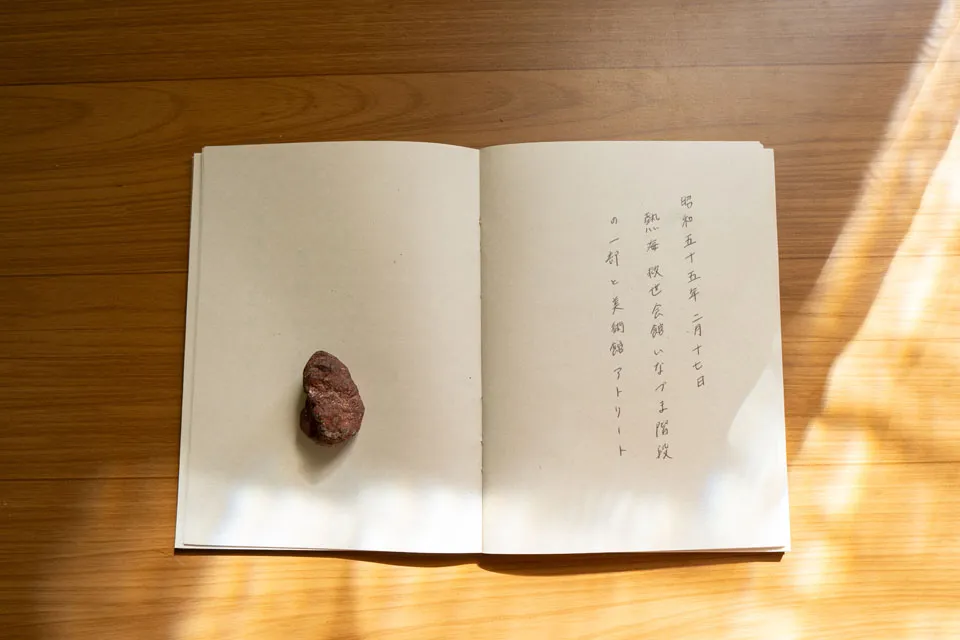 昭和五十五年 二月十七日
熱海 救世会館いなづま階段
の一部と美術館 アトリート